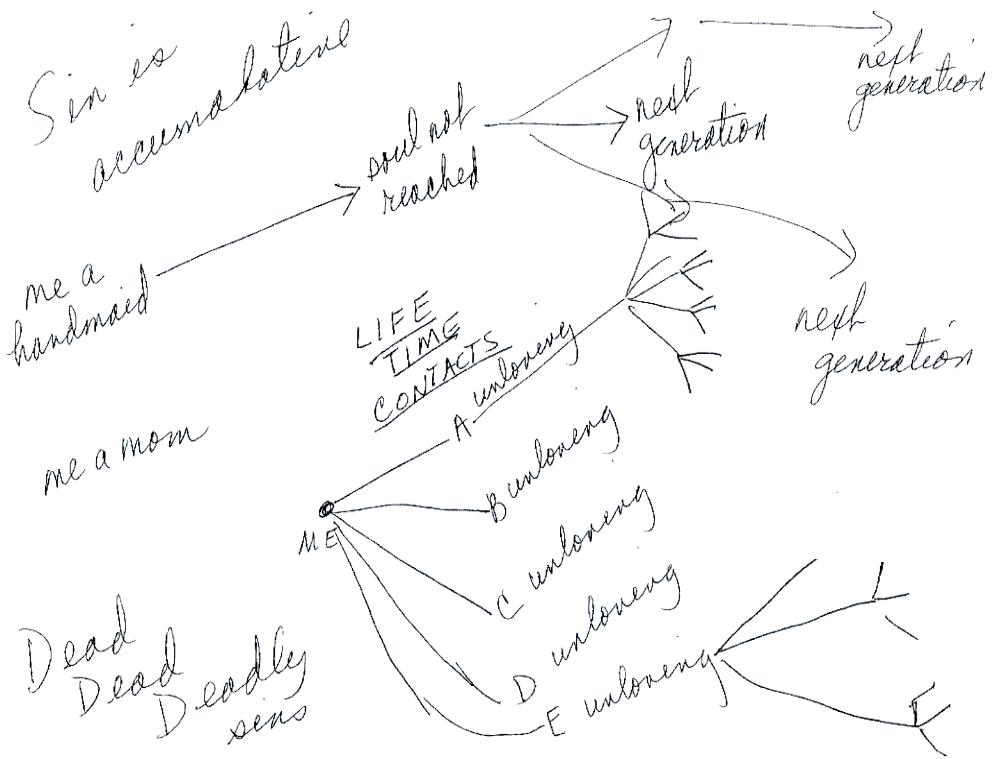 Sin is
accumalative
me a
handmaid
soul not
reached
next
generation
next
generation
next
generation
LIFE
TIME
CONTACTS
me a mom
ME
A unloveng
B unloveng
C unloveng
D
unloveng
E unloveng
Dead
Dead
Deadly
sins